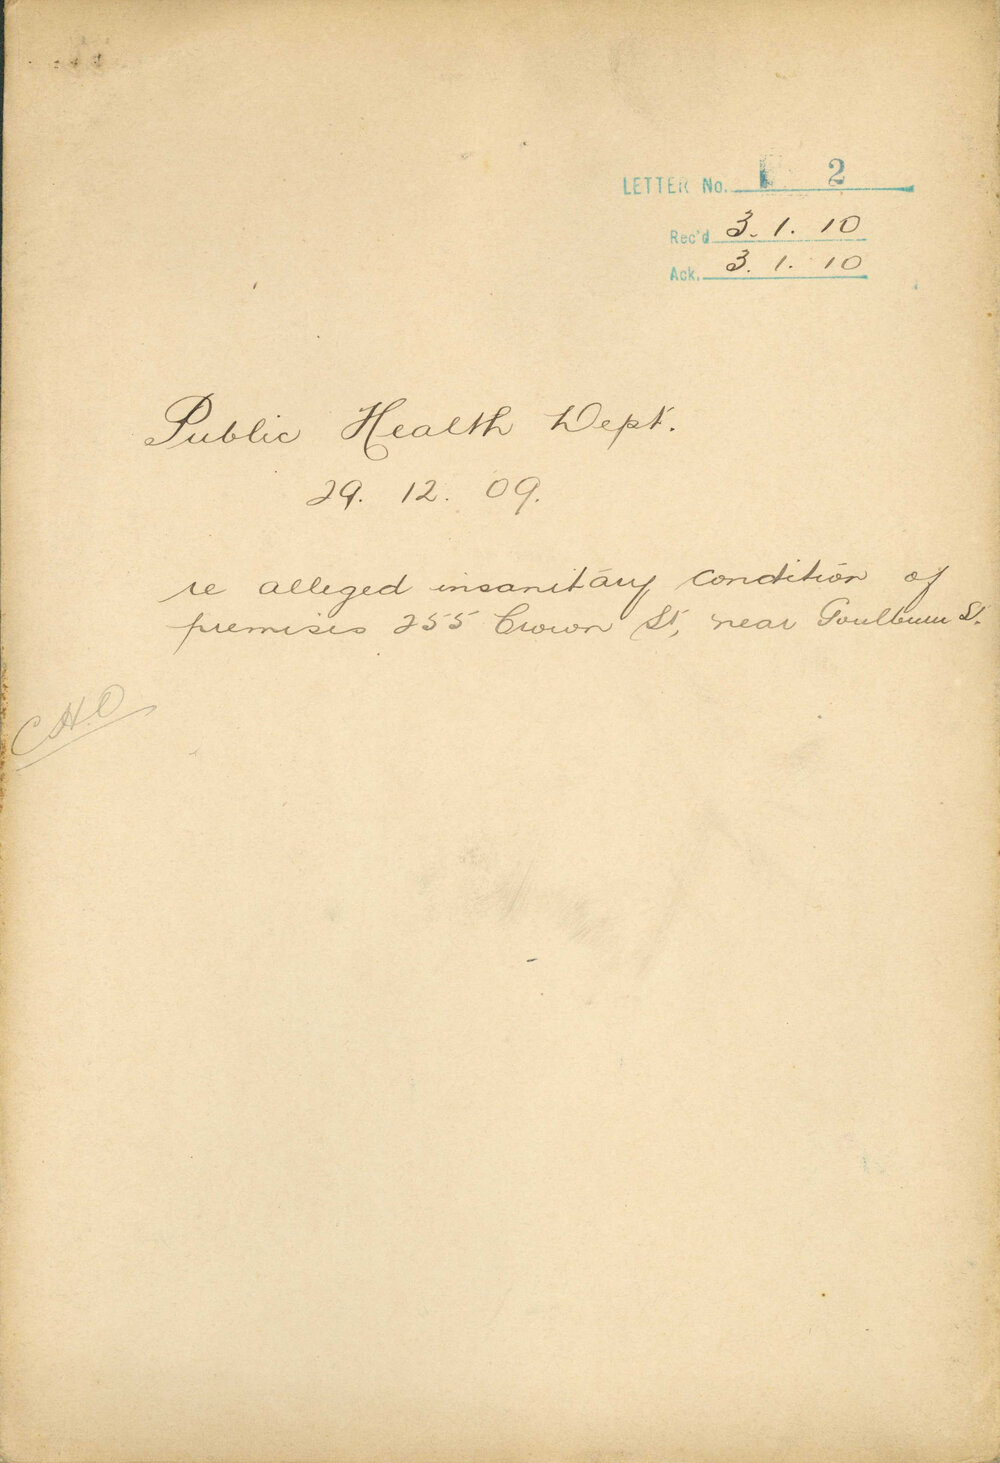 LETTER No. 2
Rec'd 3.1.10
Ack. 3.1.10
Public Health Dept.
29.12.09.
re alleged insanitary condition of
premises 255 Crown St, near Goulburn St.
C.H.O